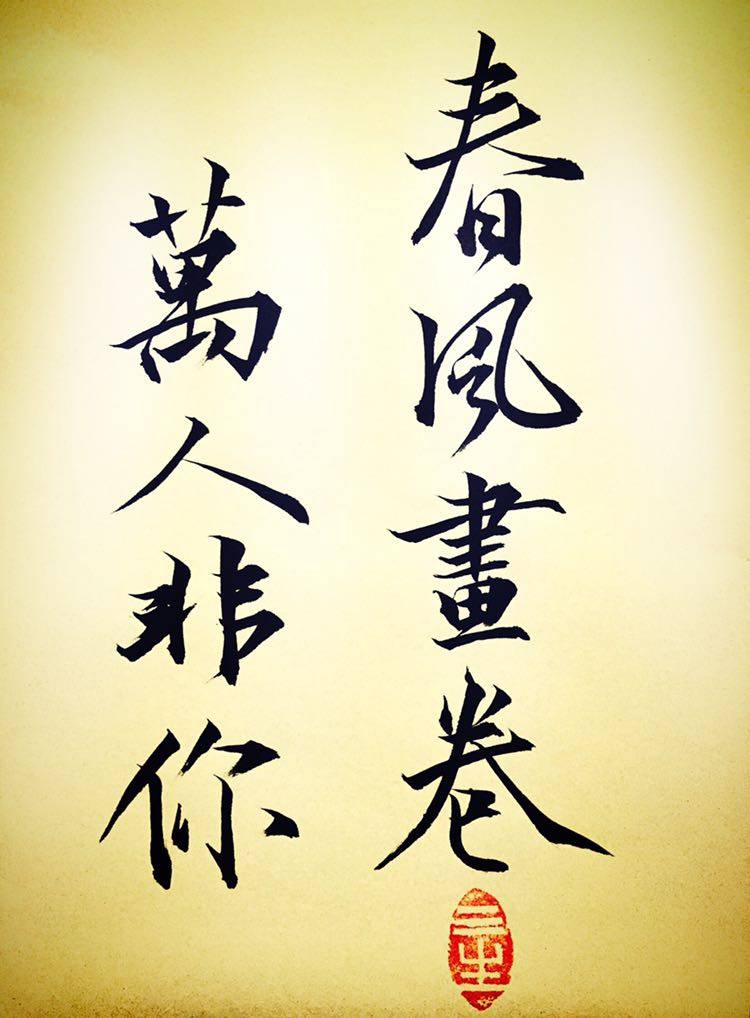 春風畫卷
萬人非你
三生